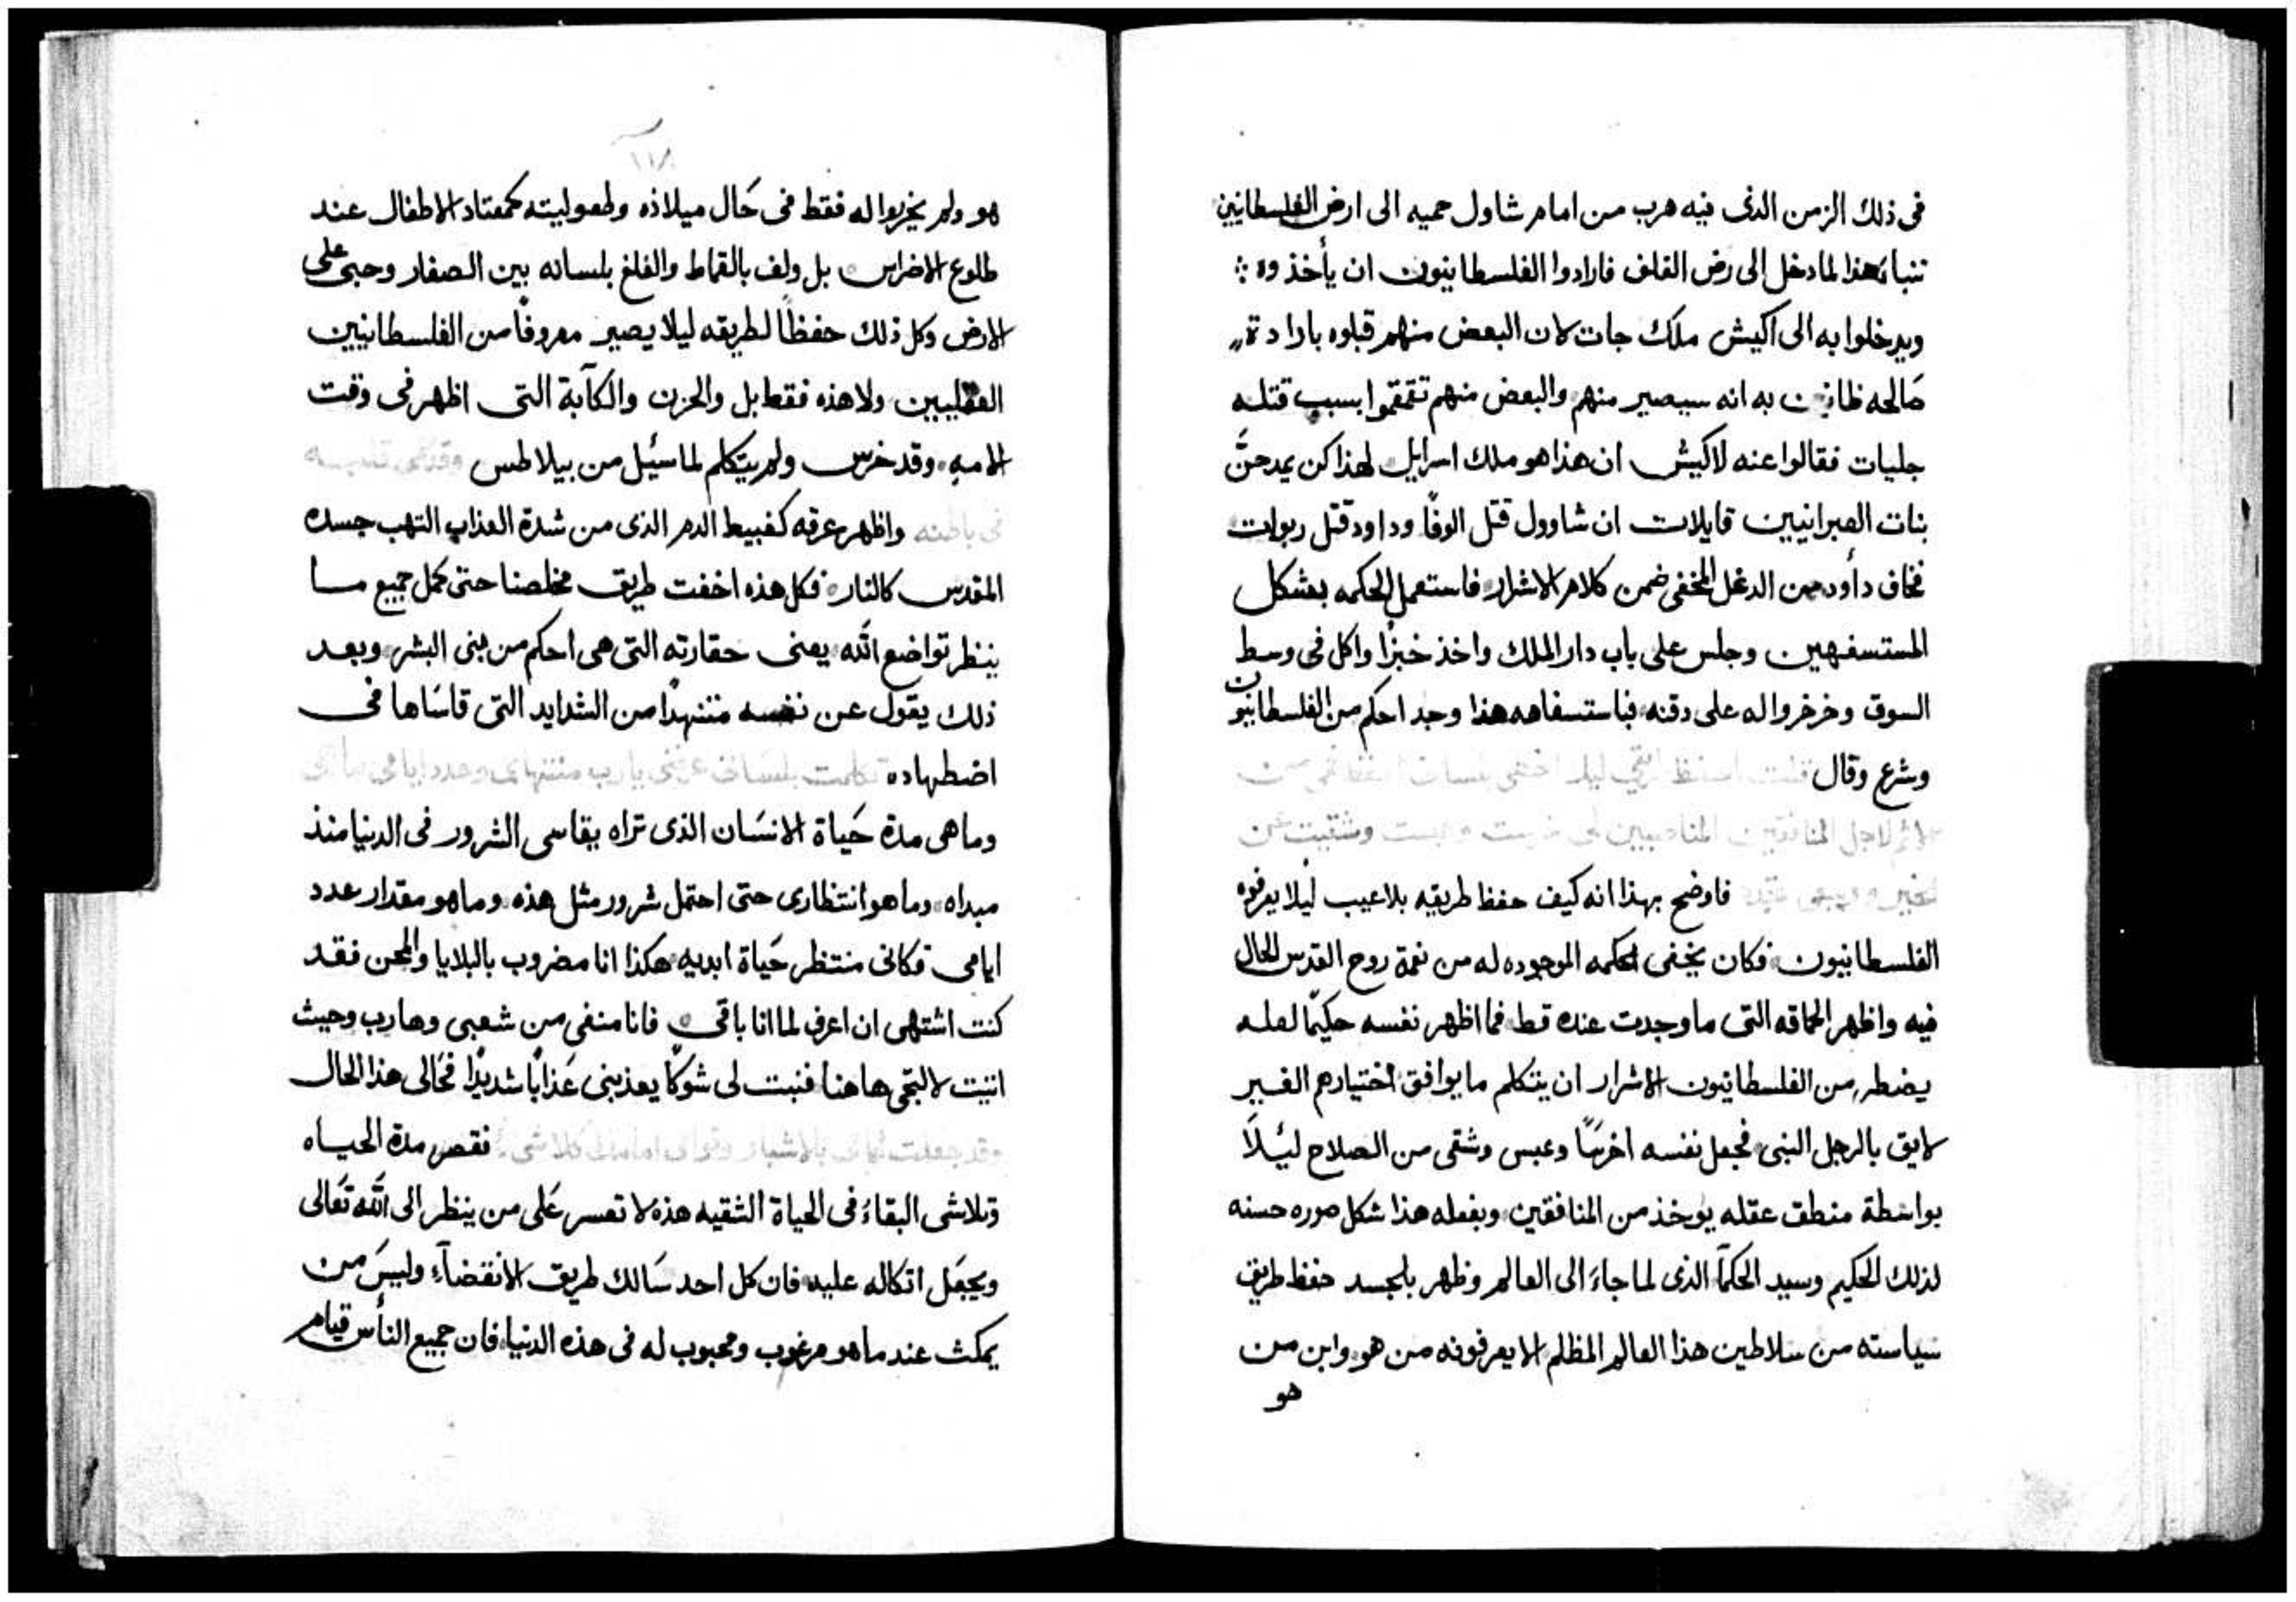 فى ذلك الزمن الذى فيه هرب من امام شاول حميه الى ارض الفلسطانيين
تنباء هذا لما دخل الى رض الفلف فارادوا الفلسطانيون ان يأخذوه
ويدخلوا به الى اكيش ملك جات لان البعض منهم قبلوه بارادة
صالحه ظانين به انه سيصير منهم والبعض منهم تقمقموا بسبب قتله
جليات فقالوا عنه لاكيش ان هذا هو ملك اسرايل لهذا كن يمدحنَّ
بنات العبرانيين قايلات ان شاوول قتل الوفًا وداود قتل ربوات
فخاف دأود من الدغل المخفى ضمن كلام الاشرار فاستعمل الحكمه بشكل
المستسفهين وجلس على باب دار الملك واخذ خبزًا واكل فى وسط
السوق وخرخر واله على دقنه فباستسفاهه هذا وجد احكم من الفلسطانيون
وشرع وقال قلت احفظ طرقي ليلا اخطى بلسانى
لاجل المنافقين المناصبين لى خرست
فاوضح بهذا انه كيف حفظ طريقه بلا عيب ليلا يعرفوه
الفلسطانيون فكان يخفى الحكمه الموجوده له من نعمة روح القدس الحال
فيه واظهر الحماقه التى ما وجدت عنده قط فما اظهر نفسه حكيمًا لعله
يضطر من الفلسطانيون الاشرار ان يتكلم ما يوافق اختيارهم الغير
لايق بالرجل النبى فجعل نفسه اخرسًا وعبس وشقى من الصلاح ليئلاَ
بواسطة منطق عقله يوخذ من المنافقين وبفعله هذا شكل صوره حسنه
لذلك الحكيم وسيد الحكمآ الذى لما جاءَ الى العالم وظهر بالجسد حفظ طريق
سياسته من سلاطين هذا العالم المظلم الا يعرفونه من هو وابن من
هو
١١٨
هو ولم يخربوا له فقط فى حَال ميلاده وطفوليته كمعتاد الاطفال عند
طلوع الاضراس بل ولف بالقماط والفلغ بلسانه بين الصغار وحبى على
الارض وكل ذلك حفظًا لطريقه ليلا يصير معروفًا من الفلسطانيين
العقليين ولا هذه فقط بل والحزن والكآبة التى اظهر فى وقت
الامه وقد خرس ولم يتكلم لما سئيل من بيلاطس
فى باطنه واظهر عرقه كغبيط الدم الذى من شدة العذاب التهب جسده
المقدس كالنار فكل هذه اخفت طريق مخلصنا حتى كمل جميع ما
ينظر تواضع الله يعنى حقارته التى هى احكم من بنى البشر وبعد
ذلك يقول عن نفسه متنهدًا من الشدايد التى قاسَاها فى
اضطهاده تكلمت بلسانى عرفنى يارب منتهاى وعدد ايامى ما هى
وما هى مدة حَياة الانسَان الذى تراه يقاسى الشرور فى الدنيا منذ
مبداه وما هو انتظارى حتى احتمل شرور مثل هذه وما هو مقدار عدد
ايامى فكانى منتظر حَياة ابديه هكذا انا مضروب بالبلايا والمحن فقد
كنت اشتهى ان اعرف لما انا باقى فانا منفى من شعبى وهارب وحيث
اتيت لالتجى هاهنا فنبت لى شوكًا يعذبنى عَذابًا شديدًا فحَالى هذا الحال
وقد جعلت ايامى بالاشبار وقوامى امامك كلاشى نقص مدة الحياه
وتلاشى البقاءَ فى الحياة الشقيه هذه لا تعسر عَلى من ينظر الى الله تَعَالى
ويجعَل اتكاله عليه فان كل احد سَالك طريق الانقضآءِ وليسَ من
يمكث عند ما هو مرغوب ومحبوب له فى هذه الدنيا فان جميع النأس قيام